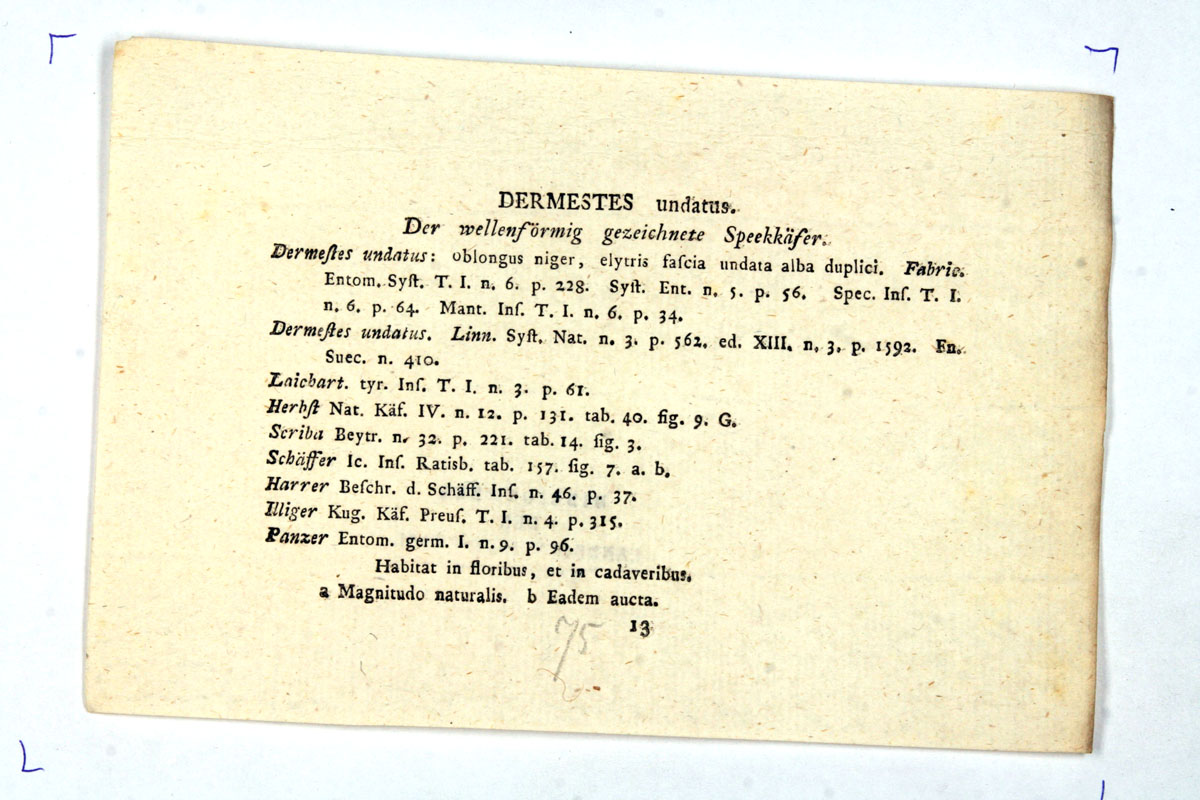 DERMESTES undatus.
Der wellenförmig gezeichnete Speekkäfer.
Dermeſtes undatus: oblongus niger, elytris faſcia undata alba duplici. Fabric.
Entom. Syſt. T. I. n. 6. p. 228. Syſt. Ent. n. 5. p. 56. Spec. Inſ. T. I.
n. 6. p. 64. Mant. Inſ. T. I. n. 6. p. 34.
Dermeſtes undatus. Linn. Syſt. Nat. n. 3. p. 562. ed. XIII. n. 3. p. 1592. Fn.
Suec. n. 410.
Laichart. tyr. Inſ. T. I. n. 3. p. 61.
Herbſt Nat. Käf. IV. n. 12. p. 131. tab. 40. fig. 9. G.
Scriba Beytr. n. 32. p. 221. tab. 14. fig. 3.
Schäffer Ic. Inſ. Ratisb. tab. 157. fig. 7. a. b.
Harrer Beſchr. d. Schäff. Inſ. n. 46. p. 37.
Illiger Kug. Käf. Preuſ. T. I. n. 4. p. 315.
Panzer Entom. germ. I. n. 9. p. 96.
Habitat in floribus, et in cadaveribus.
a Magnitudo naturalis. b Eadem aucta.
13
75